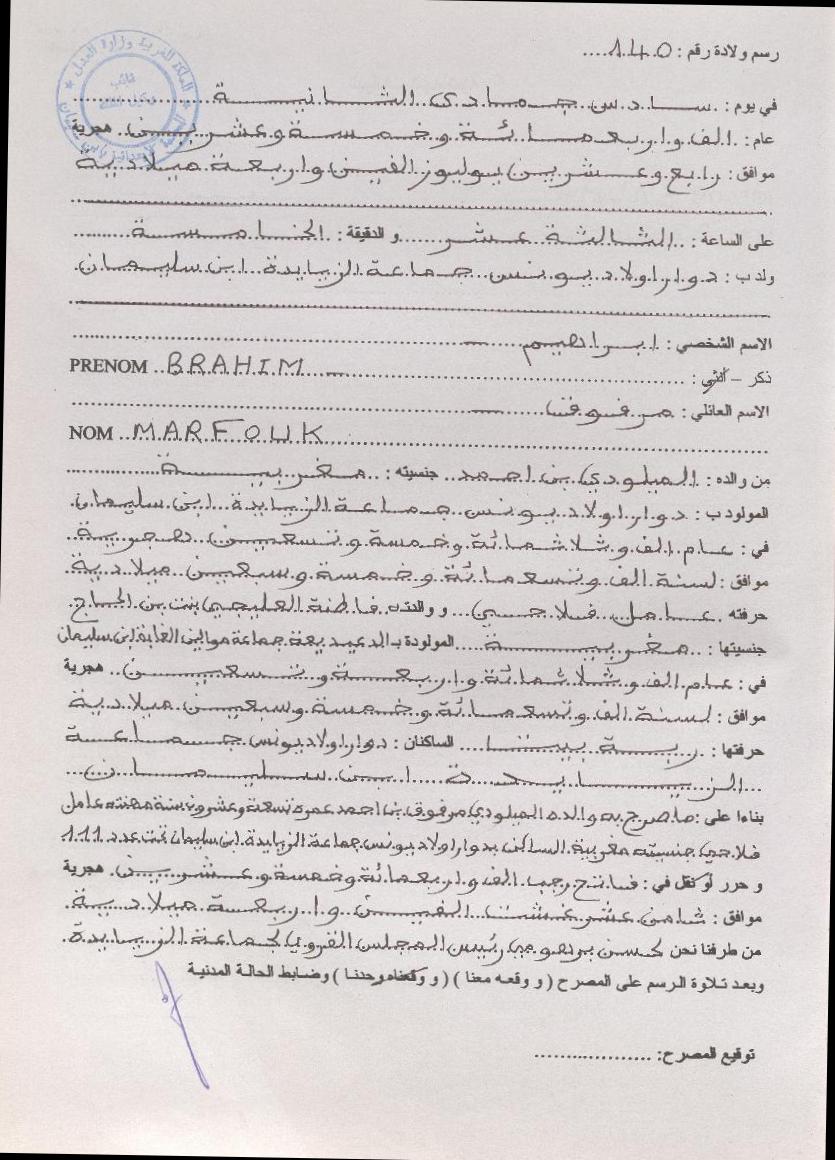 المملكة المغربية وزارة العدل
نائب
وكيل الملك
رسم ولادة رقم : 140....
في يوم : سادس جمادى الثانية
عام : الف واربعمائة وخمسة وعشرين هجرية
موافق : رابع وعشرين يوليوز الفين واربعة ميلادية
على الساعة : الثالثة عشر والدقيقة : الخامسة
ولد ب : دوار اولاد يونس جماعة الزيايدة ابن سليمان
الاسم الشخصي : ابراهيم
ذكر – أنثى : PRENOM BRAHIM
الاسم العائلي : مرفوق
NOM MARFOUK
من والده : الميلودي بن احمد جنسيته : مغربية
المولود ب : دوار اولاد يونس جماعة الزيايدة ابن سليمان
في : عام الف وثلاثمائة وخمسة وتسعين هجرية
موافق : لسنة الف وتسعمائة وخمسة وسبعين ميلادية
حرفته عامل فلاحي ووالدته فاطنة العليجي بنت بن الحاج
جنسيتها : مغربية المولودة ب جماعة موالين الغابة ابن سليمان
في : عام الف وثلاثمائة واربعة وتسعين هجرية
موافق : لسنة الف وتسعمائة وخمسة وسبعين ميلادية
حرفتها : ربة بيت الساكنان : دوار اولاد يونس جماعة
الزيايدة ابن سليمان
بناءا على : ما صرح به والده الميلودي مرفوق بن احمد عمره تسعة وعشرون سنة مهنته عامل
فلاحي جنسيته مغربية الساكن بدوار اولاد يونس جماعة الزيايدة ابن سليمان تحت عدد 111
و حرر أو نقل في : فاتح رجب الف واربعمائة وخمسة وعشرين هجرية
موافق : ثامن عشر غشت الفين واربعة ميلادية
من طرفنا نحن لحسن برهومي رئيس المجلس القروي لجماعة الزيايدة
وبعد تلاوة الرسم على المصرح ( و وقعه معنا ) ( و وقعناه وحدنا ) وضابط الحالة المدنية
توقيع المصرح: ....................